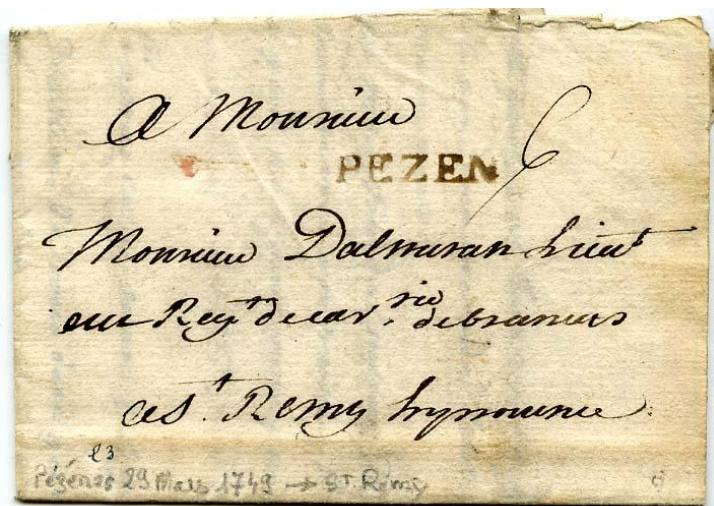 A Monsieur
PEZEN 6
Monsieur Dalmeran Lieut
au Regt de cavrie de
a St Remy
23
Pézénas 29 Mars 1749 → ST Rémy